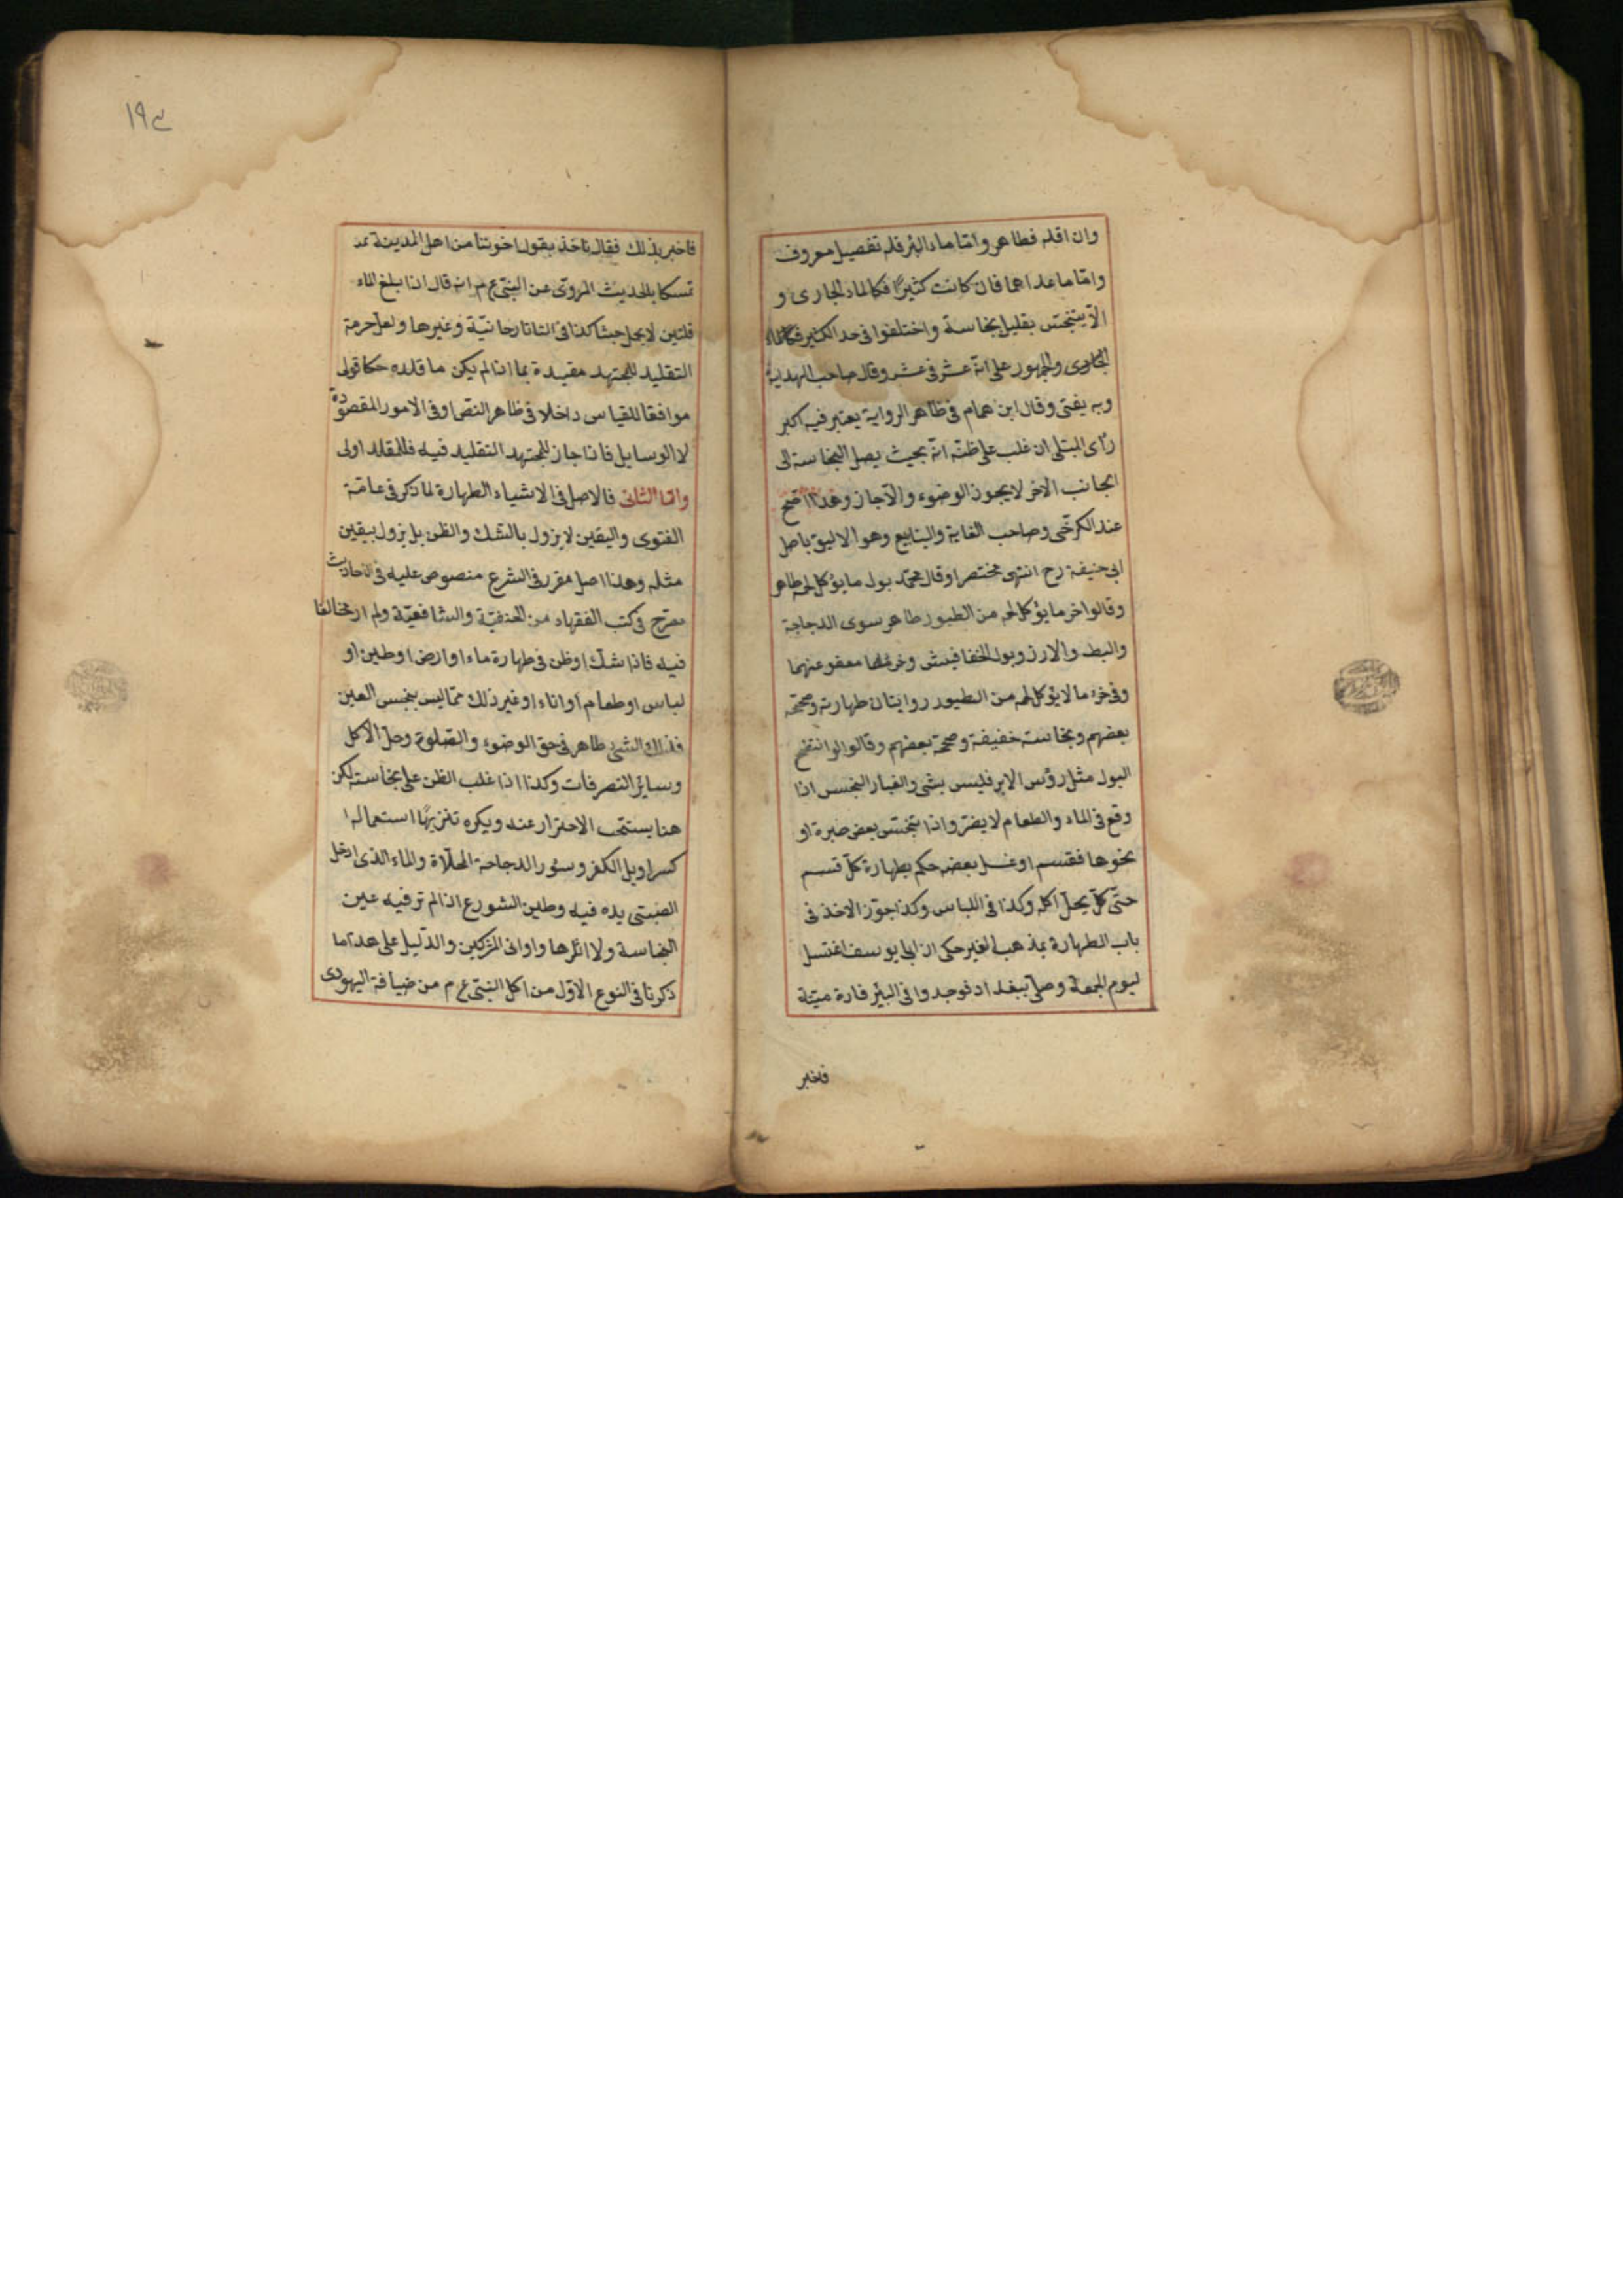 وان اقله فطاهر واما ماء البئر فله تفصيل معروف
واما ما عداهما فان كانت كثيرًا فكالماء الجارى و
الا يتنجس بقليل نجاسة واختلفوا فى حد الكثير فكالماء
الجارى والجمهور على انه عشر فى عشر وقال صاحب الهداية
وبه يفتى وقال ابن همام فى ظاهر الرواية يعتبر فيه اكبر
رأى المبتلى ان غلب على ظنه انه بحيث يصل النجاسة الى
الجانب الاخر لا يجوز الوضوء والا جاز وهذا اصح
عند الكرخى وصاحب الغاية والينابيع وهو الاليق باصل
ابى حنيفة رح انتهى مختصرا وقال محمد بول ما يؤكل لحمه طاهر
وقالوا خرء ما يؤكل لحمه من الطيور طاهر سوى الدجاجة
والبط والارز وبول الخفافيش وخرئها معفو عنهما
وفى خرء ما لا يؤكل لحمه من الطيور روايتان طهارته وصححه
بعضهم ونجاسته خفيفة وصححه بعضهم وقالوا لو انتضح
البول مثل رؤس الابر فليس بشئ والغبار النجس اذا
وقع فى الماء والطعام لا يضر واذا تنجس بعض صبرة او
نحوها فقسم او غسل بعضه حكم بطهارة كل قسم
حتى كل يحل اكله وكذا فى اللباس وكذا جوز الاخذ فى
باب الطهارة بمذهب الغير حكى ان ابا يوسف اغتسل
ليوم الجمعة وصلى ببغداد فوجدوا فى البئر فارة ميتة
فاخبر
١٩٤
فاخبر بذلك فقال ناخذ بقول اخوتنا من اهل المدينة
تمسكا بالحديث المروى عن النبى ع م انه قال اذا بلغ الماء
قلتين لا يحمل خبثا كذا فى التاتارخانية وغيرها ولعل حرمة
التقليد للمجتهد مقيدة بما اذا لم يكن ما قلده حكما قوى
موافقا للقياس داخلا فى ظاهر النص او فى الامور المقصودة
لا الوسايل فاذا جاز للمجتهد التقليد فيه فللمقلد اولى
واما الثانى فالاصل فى الاشياء الطهارة لما ذكر فى عامة
الفتوى واليقين لا يزول بالشك والظن بل يزول بيقين
مثله وهذا اصل مقرر فى الشرع منصوص عليه فى الاحاديث
مصرح فى كتب الفقهاء من الحنفية والشافعية ولم ار مخالفا
فيه فاذا شك او ظن فى طهارة ماء او ارض او طين او
لباس او طعام او اناء او غير ذلك مما ليس بنجس العين
فذلك الشئ طاهر فى حق الوضوء والصلوة وحل الاكل
وسائر التصرفات وكذا اذا غلب الظن على نجاسته لكن
هنا يستحب الاحتراز عنه ويكره تنزيهًا استعماله
كسراويل الكفر وسور الدجاجة المخلاة والماء الذى ادخل
الصبى يده فيه وطين الشورع اذا لم تر فيه عين
النجاسة ولا اثرها واوانى المشركين والدليل على هذا ما
ذكرنا فى النوع الاول من اكل النبى ع م من ضيافة اليهودى